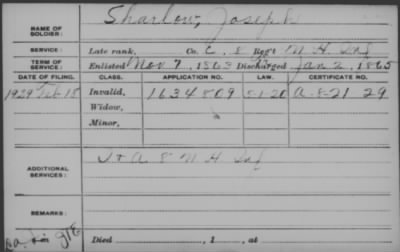 NAME OF SOLDIER: Sharlow, Joseph
SERVICE: Late rank, Co. C, 8 Reg't N. H. Inf
TERM OF SERVICE: Enlisted Nov 7, 1863 Discharged Jan 2, 1865
DATE OF FILING. CLASS. APPLICATION NO. LAW. CERTIFICATE NO.
1929 Feb 18 Invalid, 1634809 5-1-20 A-8-21-29
Widow,
Minor,
ADDITIONAL SERVICES: A 8 N H Inf
REMARKS:
Died , 1 , at